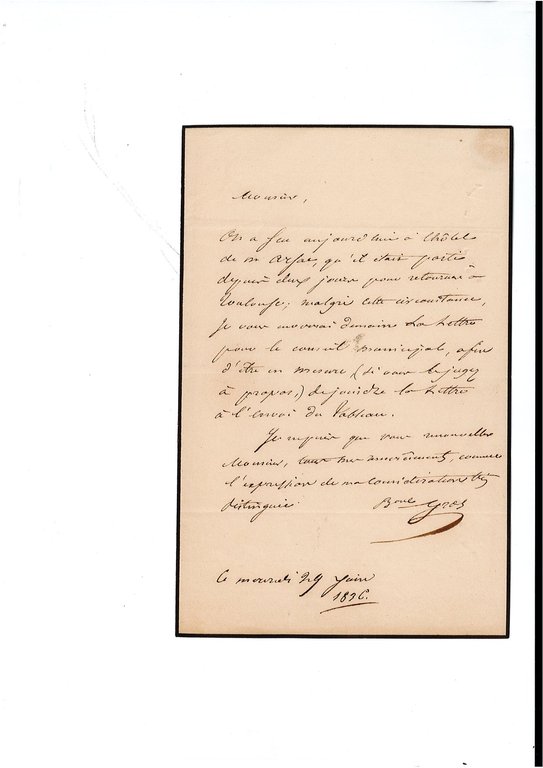 Monsieur,
On a su aujourd'hui à l'hôtel
de m arzac, qu'il était parti
depuis deux jours pour retourner à
toulouse; malgré cette circonstance,
je vous enverrai demain la Lettre
pour le conseil municipal, afin
d'être en mesure (si vous le jugez
à propos,) de joindre la Lettre
à l'envoi du Tableau.
Je ne puis que vous renouveller
Monsieur, tous mes remerciements, comme
l'expression de ma Considération très
Distinguée
Gros
Ce mercredi 29 Juin
1836.